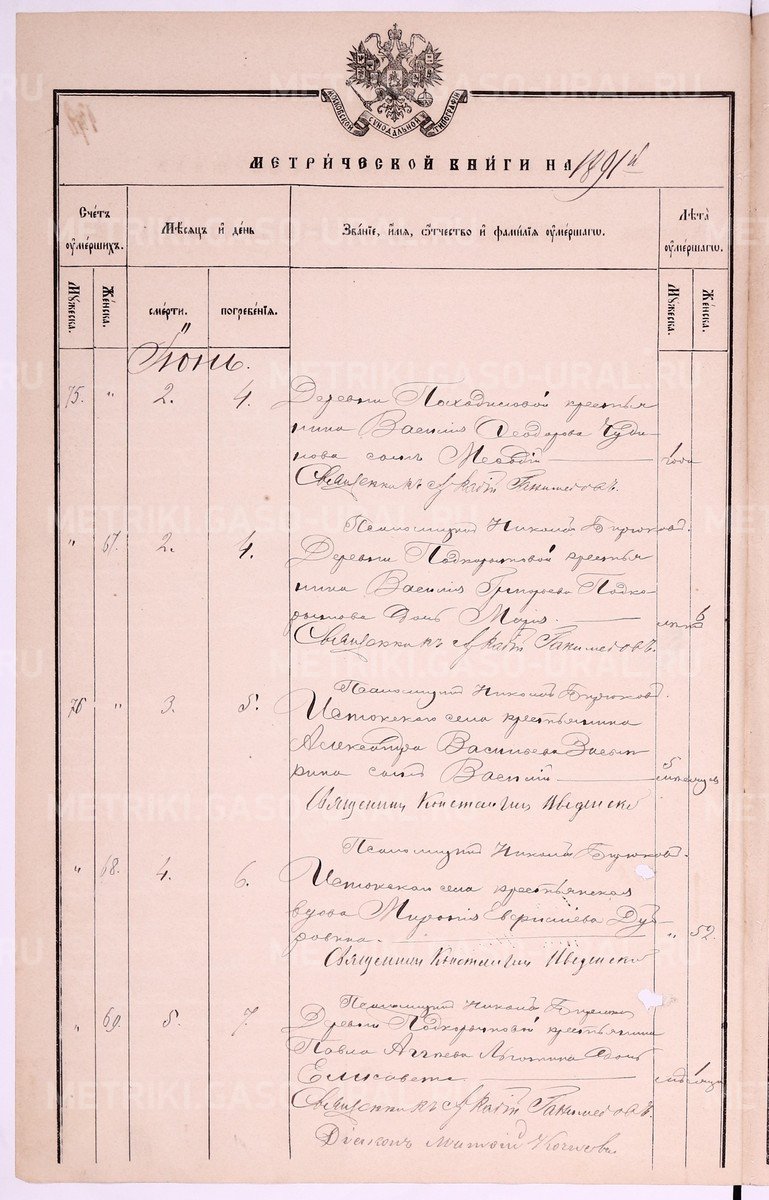 МОСКОВСКОЙ СѴНОДАЛЬНОЙ ТИПОГРАФІИ
МЕТРИ́ЧЕСКОЙ КНИ́ГИ НА 1891 й
Сче́тъ оуме́ршихъ.
Мѣ́сяцъ и де́нь
Зва́ніе, и́мя, ѻ́тчество и фами́лія оуме́ршагѡ.
Лѣта̀ оуме́ршагѡ.
Му́жеска.
Же́нска.
сме́рти.
погребе́нія.
Му́жеска.
Же́нска.
Іюнь.
75. " 2. 4. Деревни крестья
нина Василія Ѳеодорова Чуди
нова сынъ 1 года
Священникъ Аркадій Ганимедовъ.
Псаломщикъ Николай Бирюковъ.
" 67. 2. 4. Деревни Подкорытовой крестья
нина Василія Григорьева Подко
рытова дочь Марія. 6
Священникъ Аркадій Ганимедовъ.
Псаломщикъ Николай Бирюковъ.
76 " 3. 5. Истокскаго села крестьянина
Александра Васильева
сынъ Василій 5 месяцев
Священник Константин Введенск
Псаломщикъ Николай Бирюков.
" 68. 4. 6. Истокскаго села крестьянская
вдова Миропія
" 52.
Священник Константин Введенск
Псаломщикъ Николай Бирюков
" 69. 5. 7. Деревни Подкорытовой крестьянина
Павла дочь
Елисавета 1
Священникъ Аркадій Ганимедовъ.
Діаконъ
METRIKI.GASO-URAL.RU